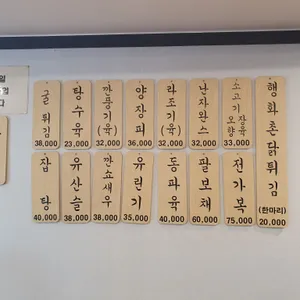 굴튀김 38,000
탕수육 23,000
깐풍기(육) 32,000
양장피 36,000
라조기(육) 32,000
난자완스 32,000
소고기오향장육 33,000
행화촌닭튀김 (한마리) 20,000
잡탕 40,000
유산슬 38,000
깐쇼새우 38,000
유린기 35,000
동파육 40,000
팔보채 60,000
전가복 75,000